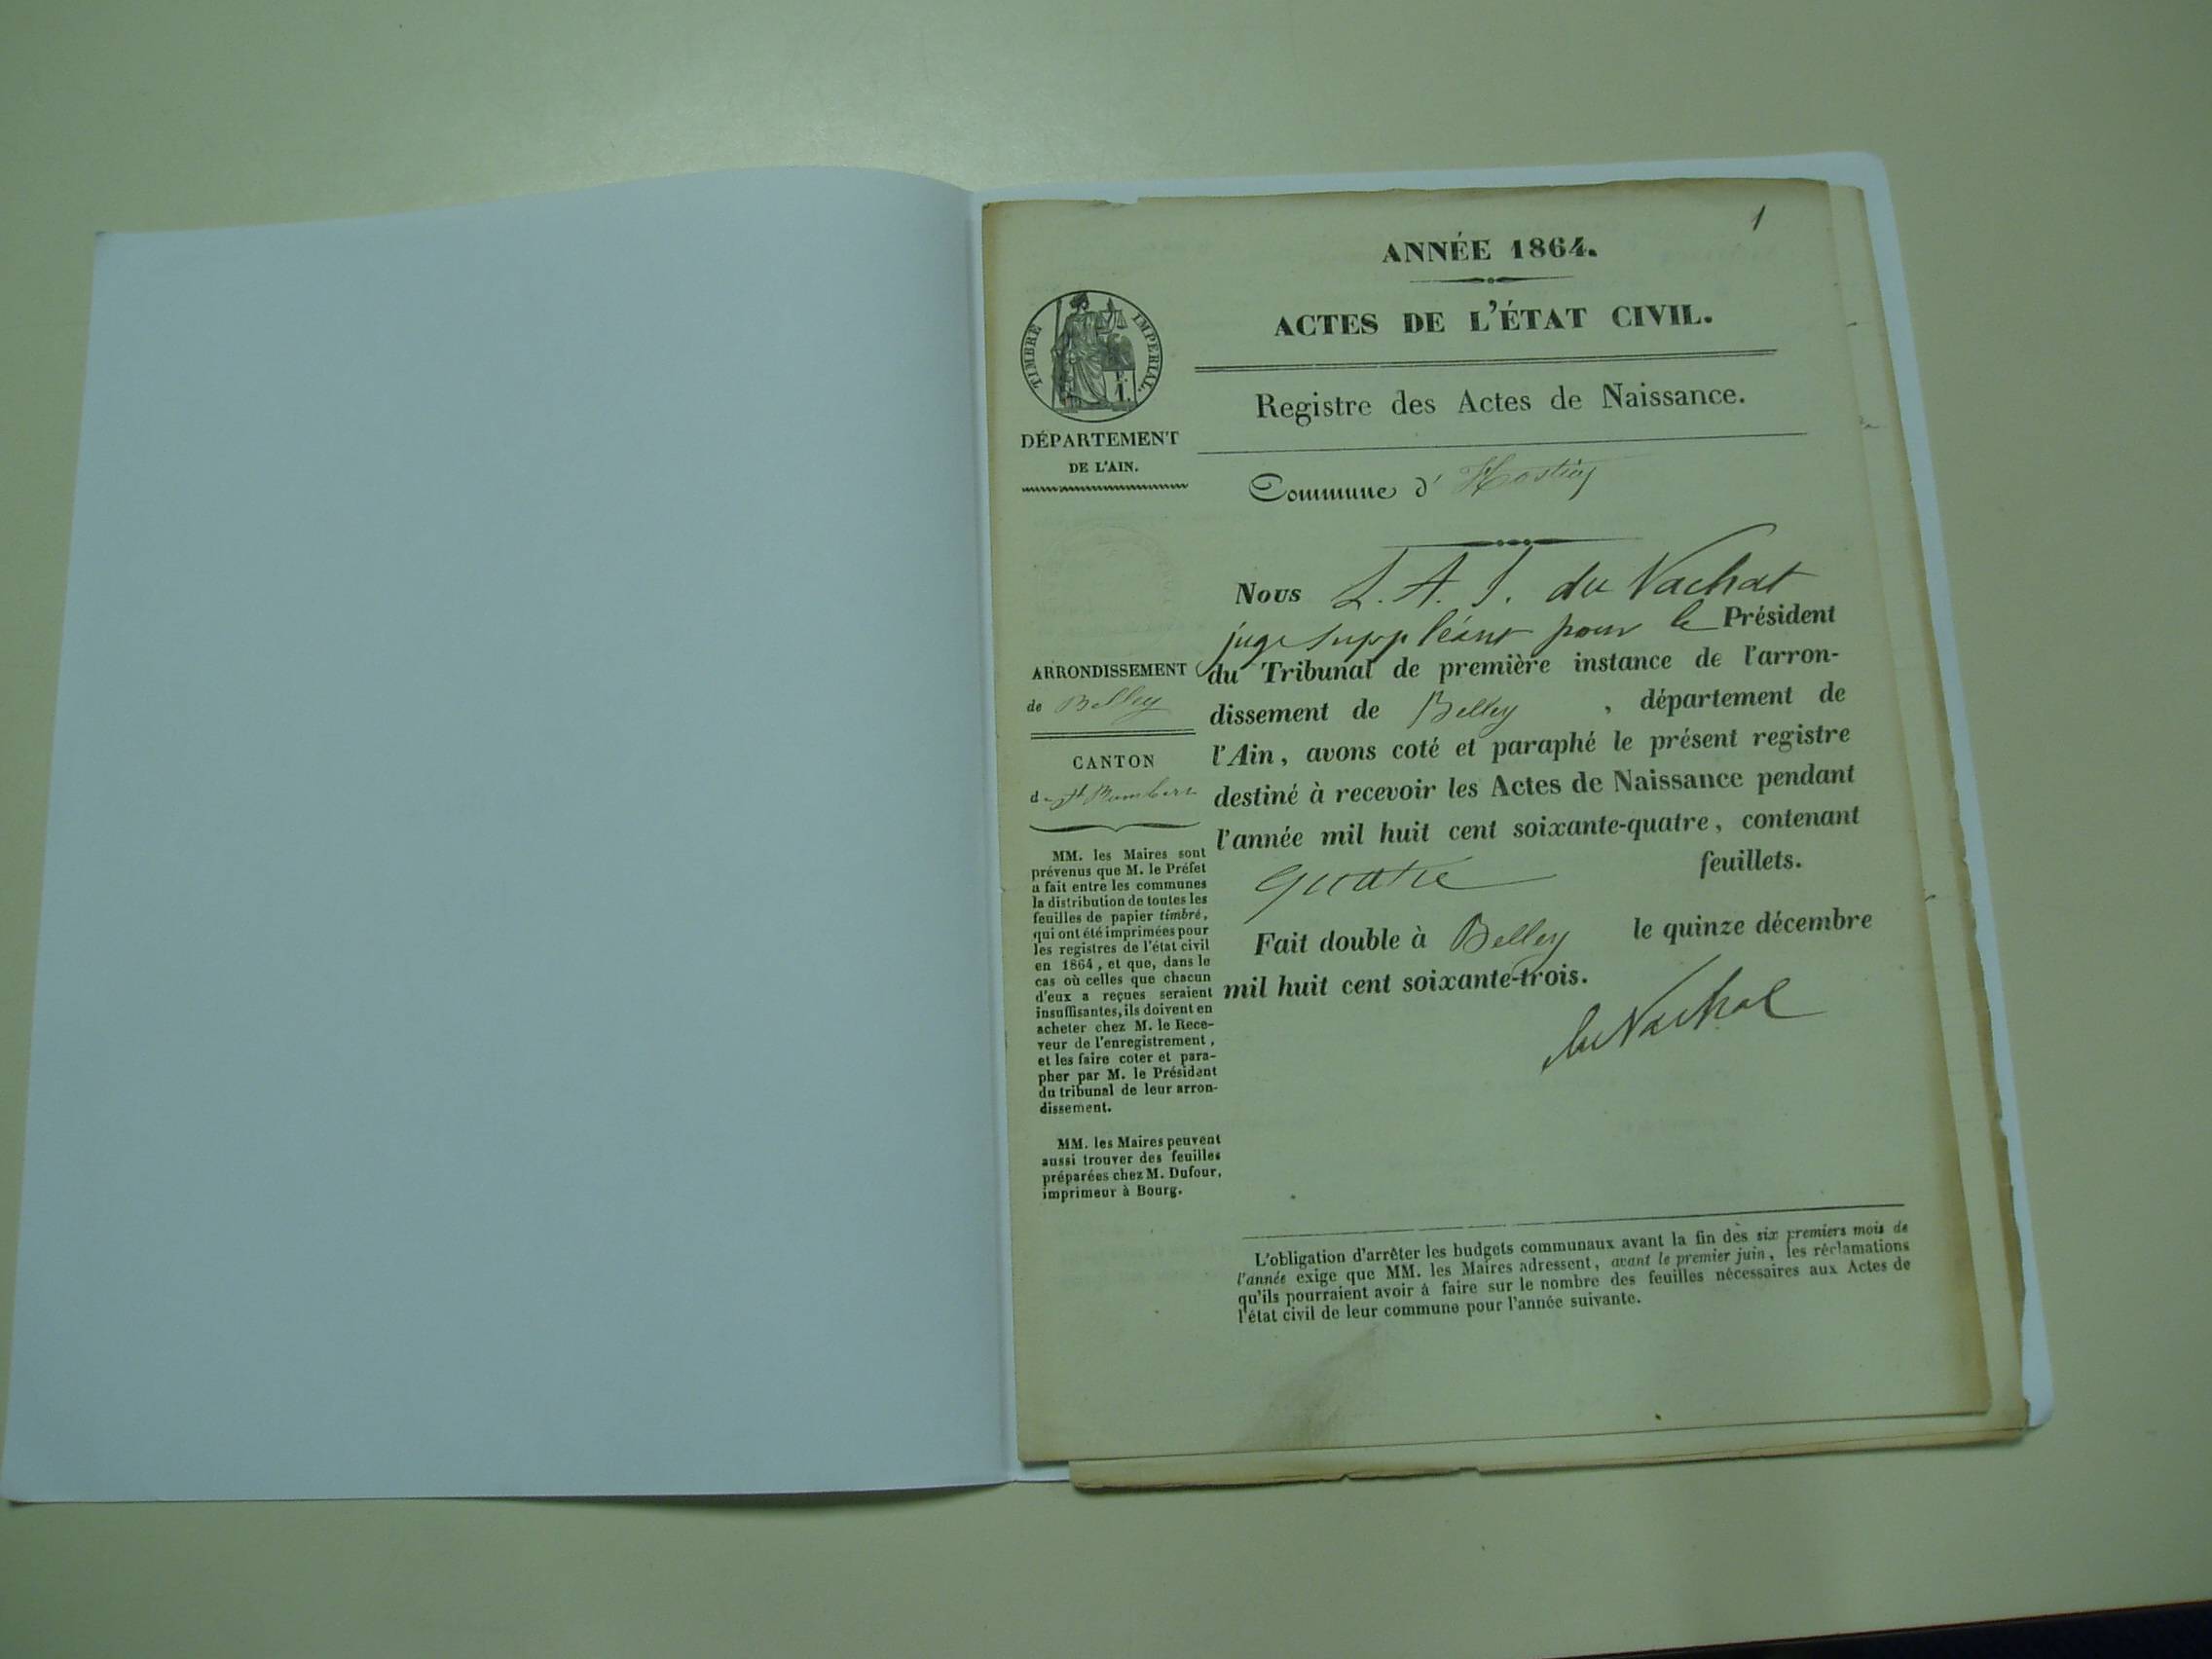 1
ANNÉE 1864.
ACTES DE L'ÉTAT CIVIL.
Registre des Actes de Naissance.
Commune d' Hostiaz
TIMBRE IMPERIAL.
1.
DÉPARTEMENT
DE L'AIN.
ARRONDISSEMENT
de Belley
CANTON
de St Rambert
MM. les Maires sont
prévenus que M. le Préfet
a fait entre les communes
la distribution de toutes les
feuilles de papier timbré,
qui ont été imprimées pour
les registres de l'état civil
en 1864, et que, dans le
cas où celles que chacun
d'eux a reçues seraient
insuffisantes, ils doivent en
acheter chez M. le Rece-
veur de l'enregistrement,
et les faire coter et para-
pher par M. le Président
du tribunal de leur arron-
dissement.
MM. les Maires peuvent
aussi trouver des feuilles
préparées chez M. Dufour,
imprimeur à Bourg.
Nous L. A. J. du Vachat
juge suppléant pour le Président
du Tribunal de première instance de l'arron-
dissement de Belley, département de
l'Ain, avons coté et paraphé le présent registre
destiné à recevoir les Actes de Naissance pendant
l'année mil huit cent soixante-quatre, contenant
quatre feuillets.
Fait double à Belley le quinze décembre
mil huit cent soixante-trois.
du Vachat
L'obligation d'arrêter les budgets communaux avant la fin des six premiers mois de
l'année exige que MM. les Maires adressent, avant le premier juin, les réclamations
qu'ils pourraient avoir à faire sur le nombre des feuilles nécessaires aux Actes de
l'état civil de leur commune pour l'année suivante.